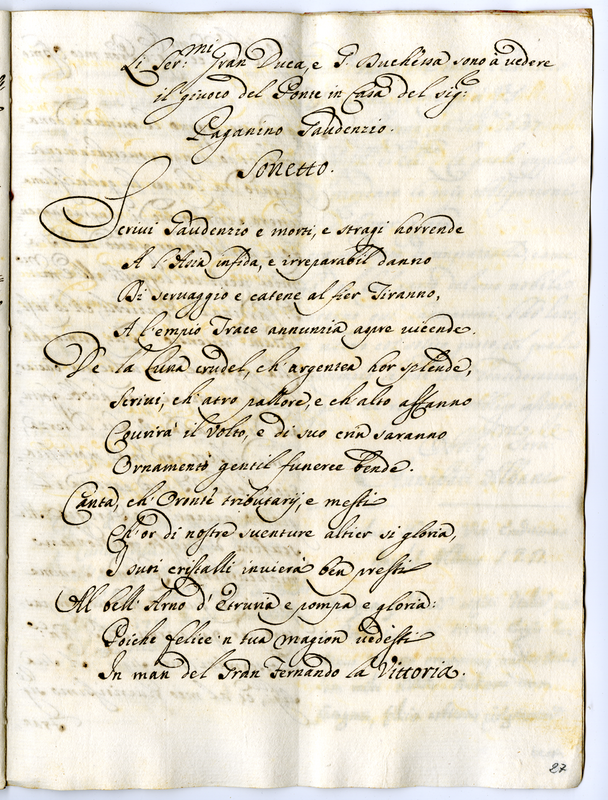 Li Ser.mi Gran Duca, e G. Duchessa sono à vedere
il giuoco del Ponte in Casa del Sig:r
Paganino Gaudenzio.
Sonetto.
Scrivi Gaudenzio e morti, e stragi horrende
A l'Asia infida, e irreparabil danno
Di seruaggio e catene al fier Tiranno,
A l'empio Trace annunzia apre uicende.
De la Luna crudel, ch'argentea hor splende,
Scrivi, ch'atro pallore, e ch'alto affanno
Courirà il volto, e di suo crin saranno
Ornamentò gentil funeree bende.
Canta, ch'Oronte tributarij, e mesti
Ch'or di nostre suenture altier si gloria,
I suri cristalli inuierà ben presti
Al bell'Arno d'Etruria e pompa e gloria:
Poiche felice n tua magion uedesti
In man del Gran Fernando la Vittoria.
27